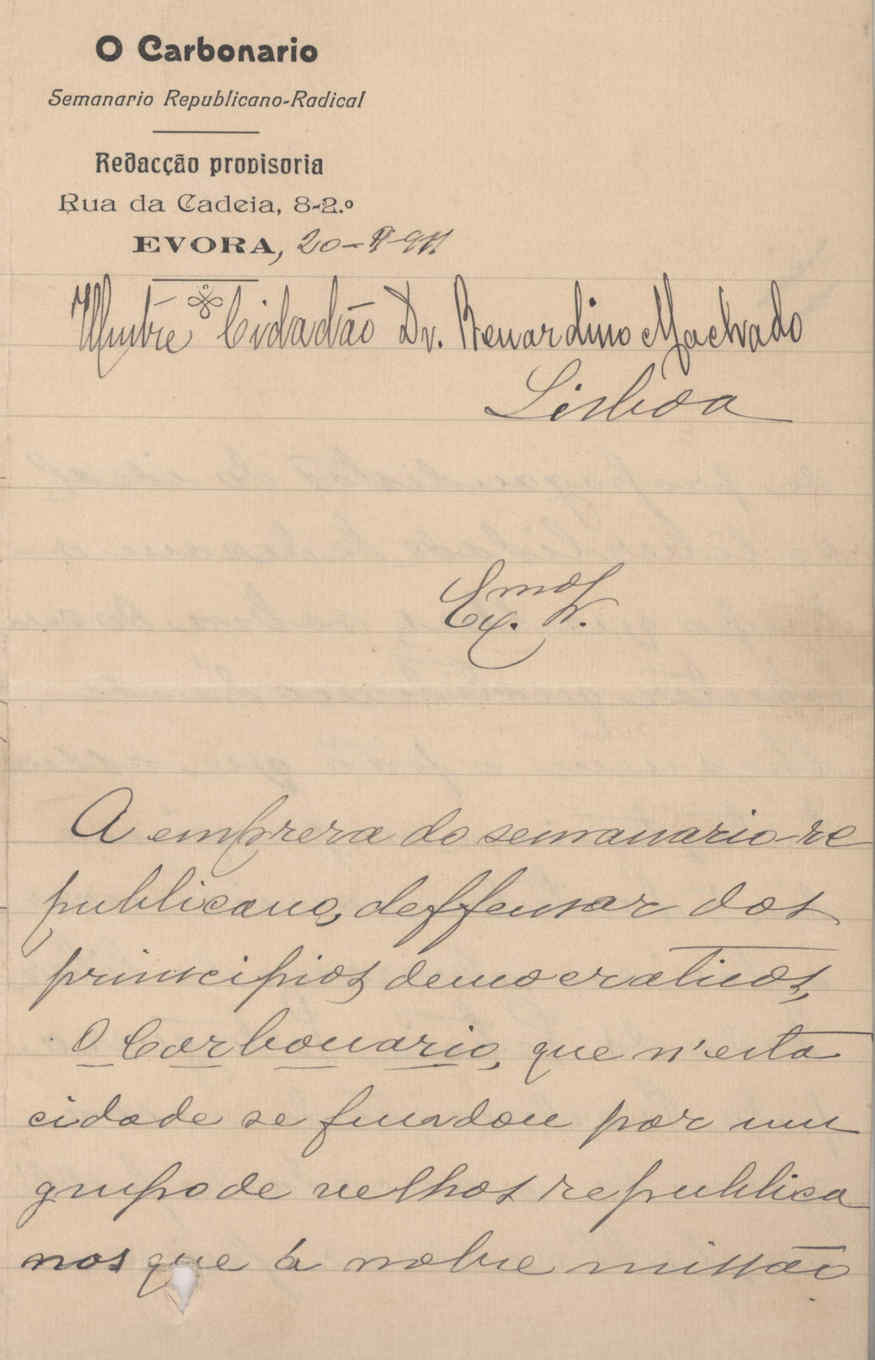 O Carbonario
Semanario Republicano-Radical
Redacção provisoria
Rua da Cadeia, 8-2.º
EVORA, 20-
Illustre Cidadão Dr. Bernardino Machado
Lisboa
Ex.mo Sr.
A empreza do semanario re
publicano, deffensor dos
principios democraticos,
O Carbonario, que n'esta
cidade se fundou por um
grupo de velhos republica
nos que á nobre missão